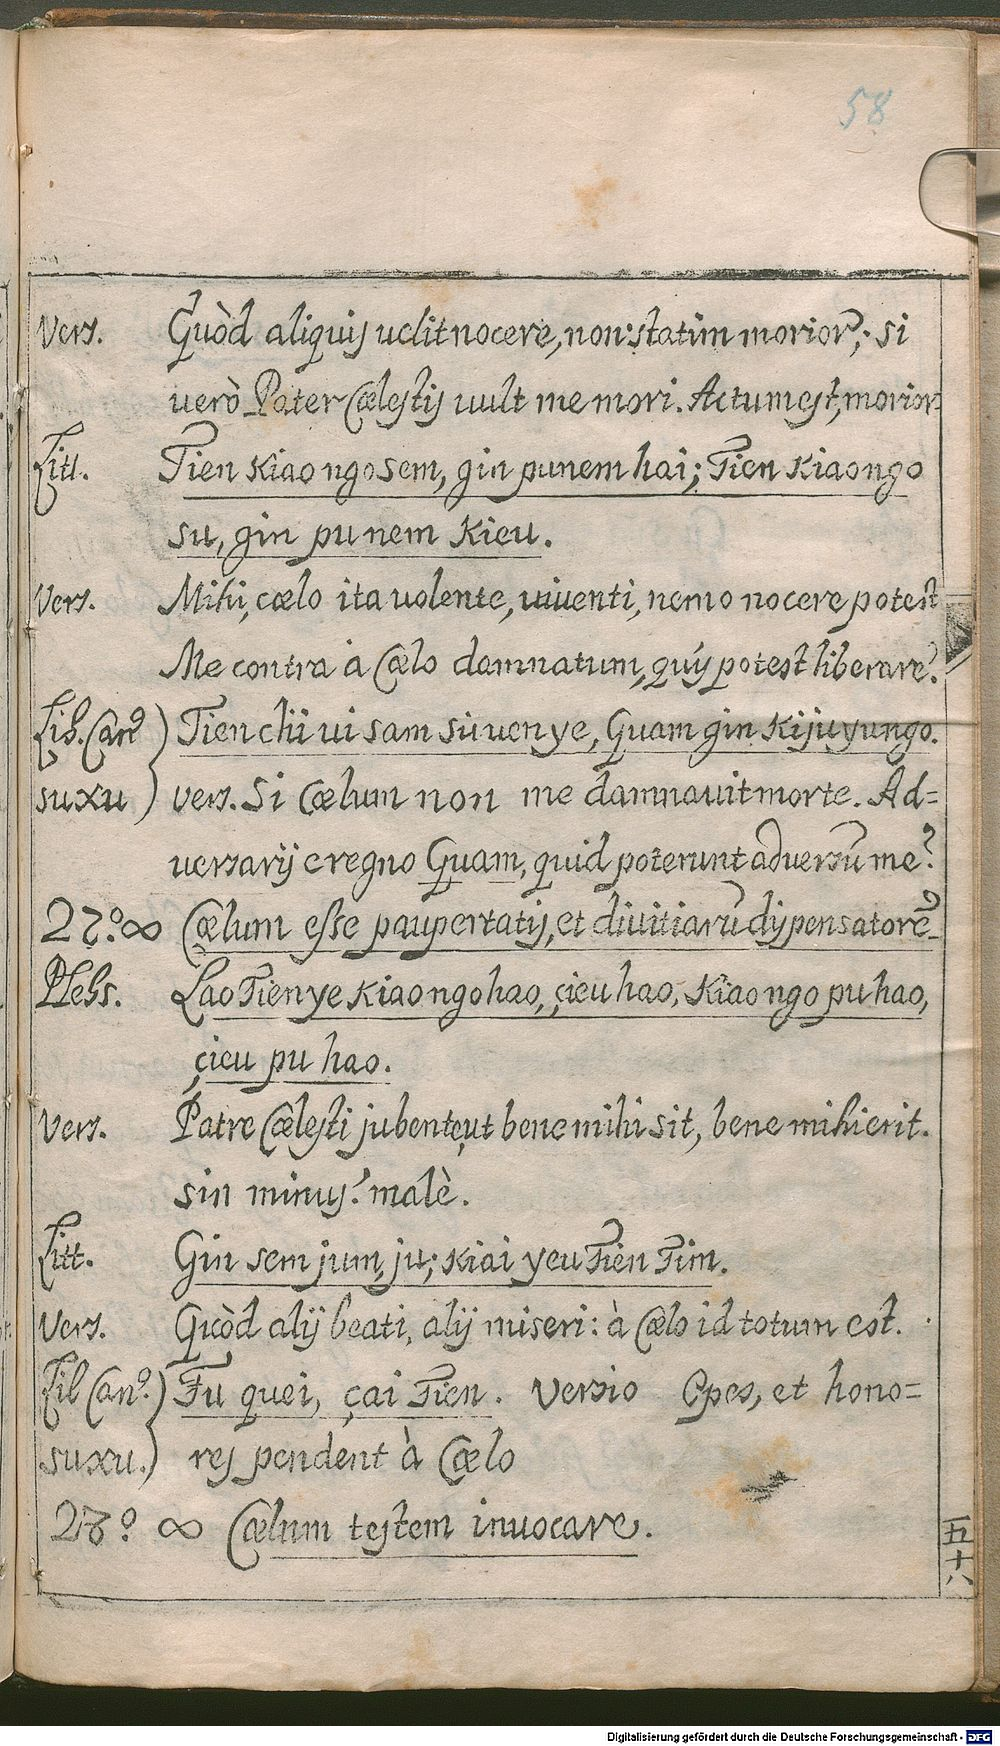 58
Vers. Quòd aliquis velit nocere, non statim morior; si
verò Pater Cælestis vult me mori. Actum est, morior.
Litt. Tien Kiao ngo sem, gin pu nem hai; Tien Kiao ngo
su, gin pu nem Kieu.
Vers. Mihi, cælo ita volente, viventi, nemo nocere potest
Me contra à Cælo damnatum, quis potest liberare?
Lib. Can.) Tien chi vi sam su ven ye, Quam gin Ki ju yu ngo.
su xu) vers. Si Cælum non me damnavit morte. Ad=
versarij e regno Quam, quid poterunt adversū me?
27.º ∞ Cælum esse paupertatis, et divitiarū dispensatorē
Plebs. Lao Tien ye Kiao ngo hao, çieu hao, Kiao ngo pu hao,
çieu pu hao.
Vers. Patre Cælesti jubente, ut bene mihi sit, bene mihi erit.
sin minus? malè.
Litt. Gin sem jum, ju; Kiai yeu Tien Tim.
Vers. Quòd alij beati, alij miseri: à Cælo id totum est.
Lib Can.) Fu quei, çai Tien. Versio Opes, et hono=
su xu.) res pendent à Cælo
28º ∞ Cælum testem invocare.
五十八
Digitalisierung gefördert durch die Deutsche Forschungsgemeinschaft - DFG